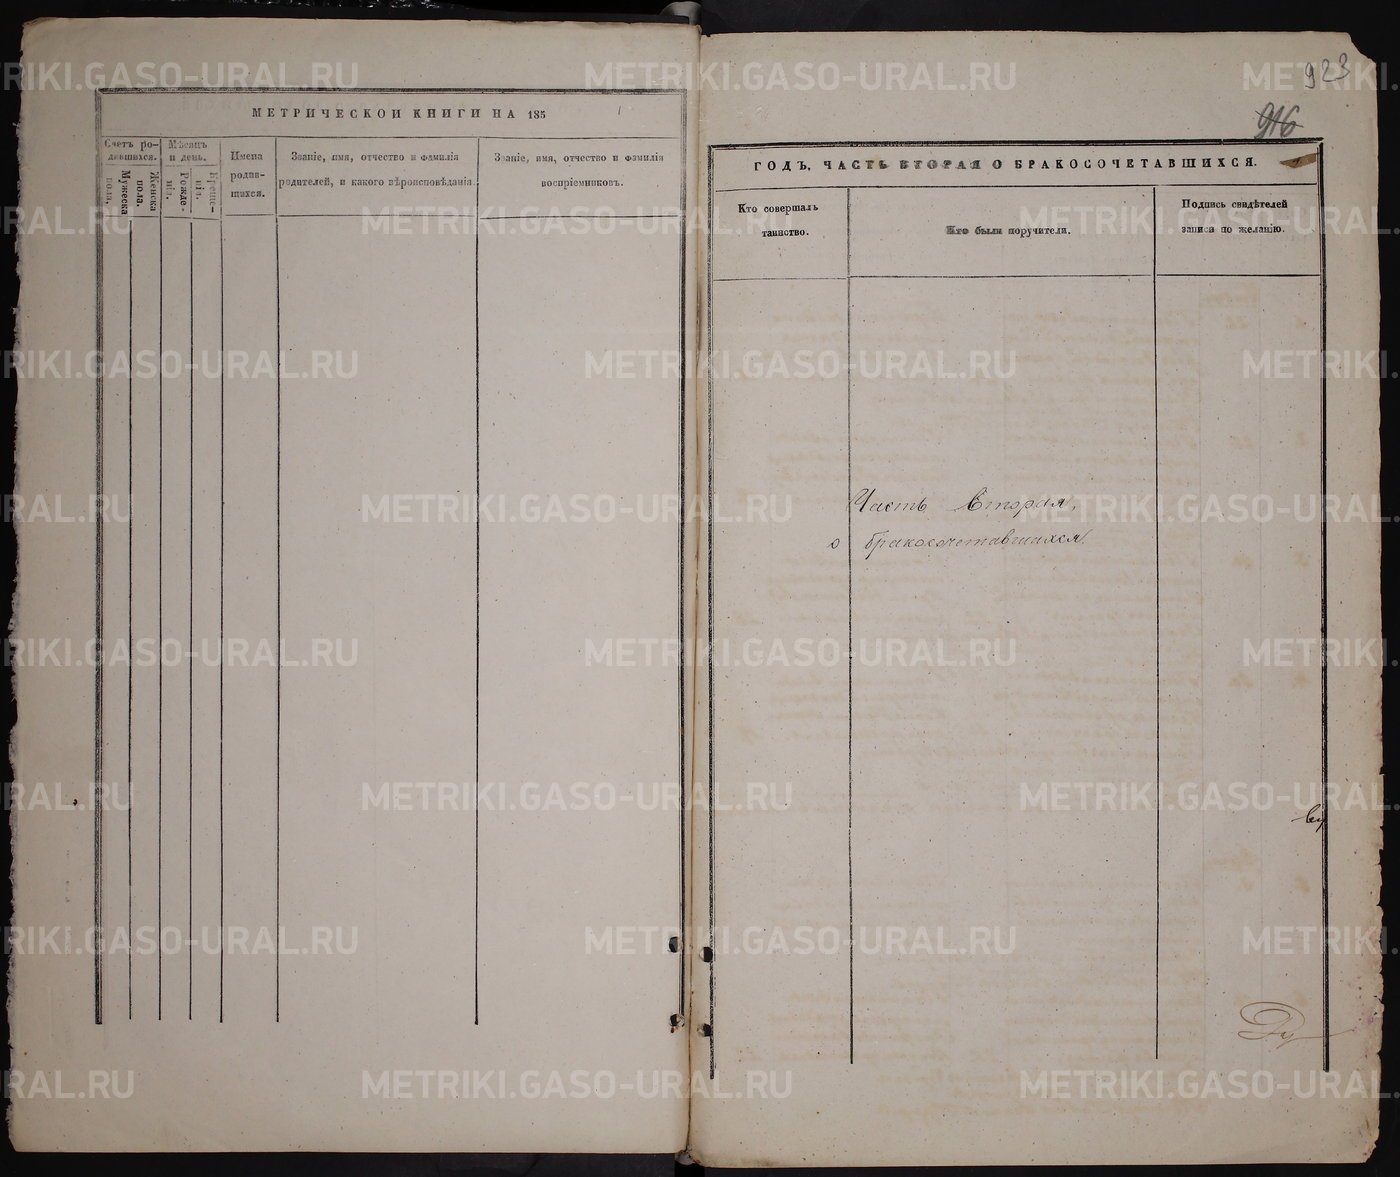 МЕТРИЧЕСКОЙ КНИГИ НА 185
Счетъ ро-
дившихся.
Мужеска
пола.
Женска
пола.
Мѣсяцъ
и день.
Рожде-
нія.
Креще-
нія.
Имена
родив-
шихся.
Званіе, имя, отчество и фамилія
родителей, и какого вѣроисповѣданія.
Званіе, имя, отчество и фамилія
воспріемниковъ.
923
916
ГОДЪ, ЧАСТЬ ВТОРАЯ О БРАКОСОЧЕТАВШИХСЯ.
Кто совершалъ
таинство.
Кто были поручители.
Подпись свидѣтелей
записи по желанію.
Часть Вторая,
о бракосочетавшихся.
METRIKI.GASO-URAL.RU